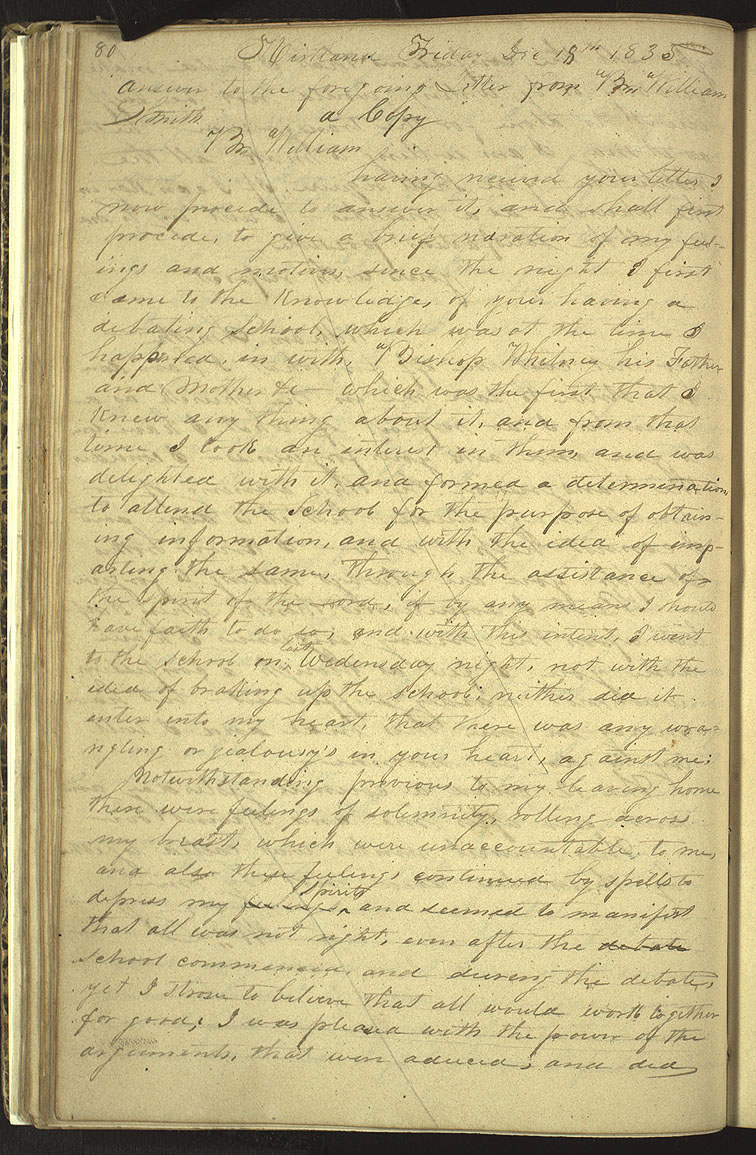 80 Kirtland Friday Dec 18th 1835
answer to the foregoing Letter from Br. William
Smith a Copy
Br. William
having received your letter I
now procede to answer it, and shall first
procede, to give a brief naration of my feel-
ings and motives, since the night I first
came to the knowledge, of your having a
debating School, which was at the time I
happened in with, Bishop Whitney his Father
and Mother &c— which was the first that I
knew any thing about it, and from that
time I took an interest in them, and was
delighted with it, and formed a determination,
to attend the School for the purpose of obtain-
ing information, and with the idea of imp-
arting the same, through the assistance of
the spirit of the Lord, if by any means I should
have faith to do so; and with this intent, I went
to the school on last Wedensday night, not with the
idea of braking up the school, neither did it
enter into my heart, that there was any wra-
ngling or jealousy's in your heart, against me;
Notwithstanding previous to my leaving home
there were feelings of solemnity, rolling across
my breast, which were unaccountable, to me,
and also these feelings continued by spells to
depress my feelings spirits, and seemed to manifest
that all was not right, even after the debate
school commenced, and during the debate,
yet I strove to believe that all would work together
for good; I was pleased with the power of the
arguments, that were aduced, and did